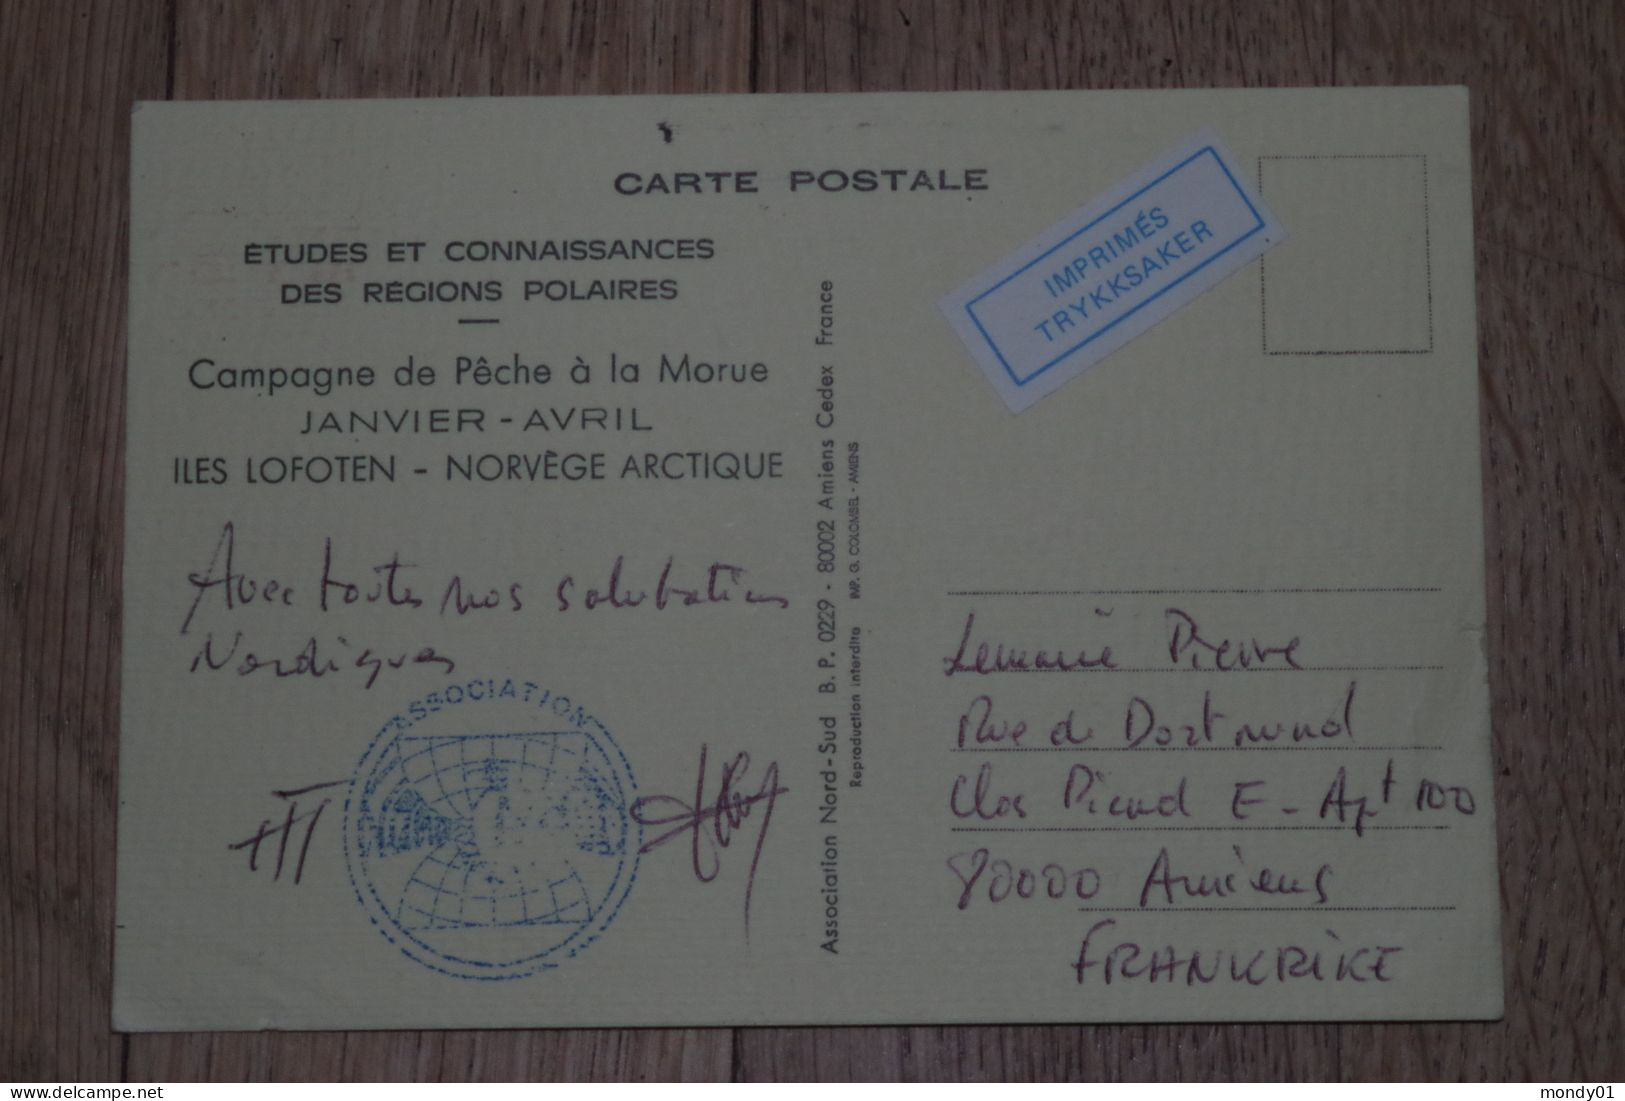 CARTE POSTALE
ÉTUDES ET CONNAISSANCES
DES RÉGIONS POLAIRES
Campagne de Pêche à la Morue
JANVIER - AVRIL
ILES LOFOTEN - NORVÈGE ARCTIQUE
Avec toutes nos salutations
Nordiques
ASSOCIATION
Association Nord-Sud B. P. 0229 - 80002 Amiens Cedex France
Reproduction interdite IMP. G. COLOMBEL - AMIENS
IMPRIMÉS
TRYKKSAKER
Lemarié Pierre
Rue de Dortmund
Clos Picard E - Apt 100
80000 Amiens
FRANKRIKE
delcampe.net
mondy01